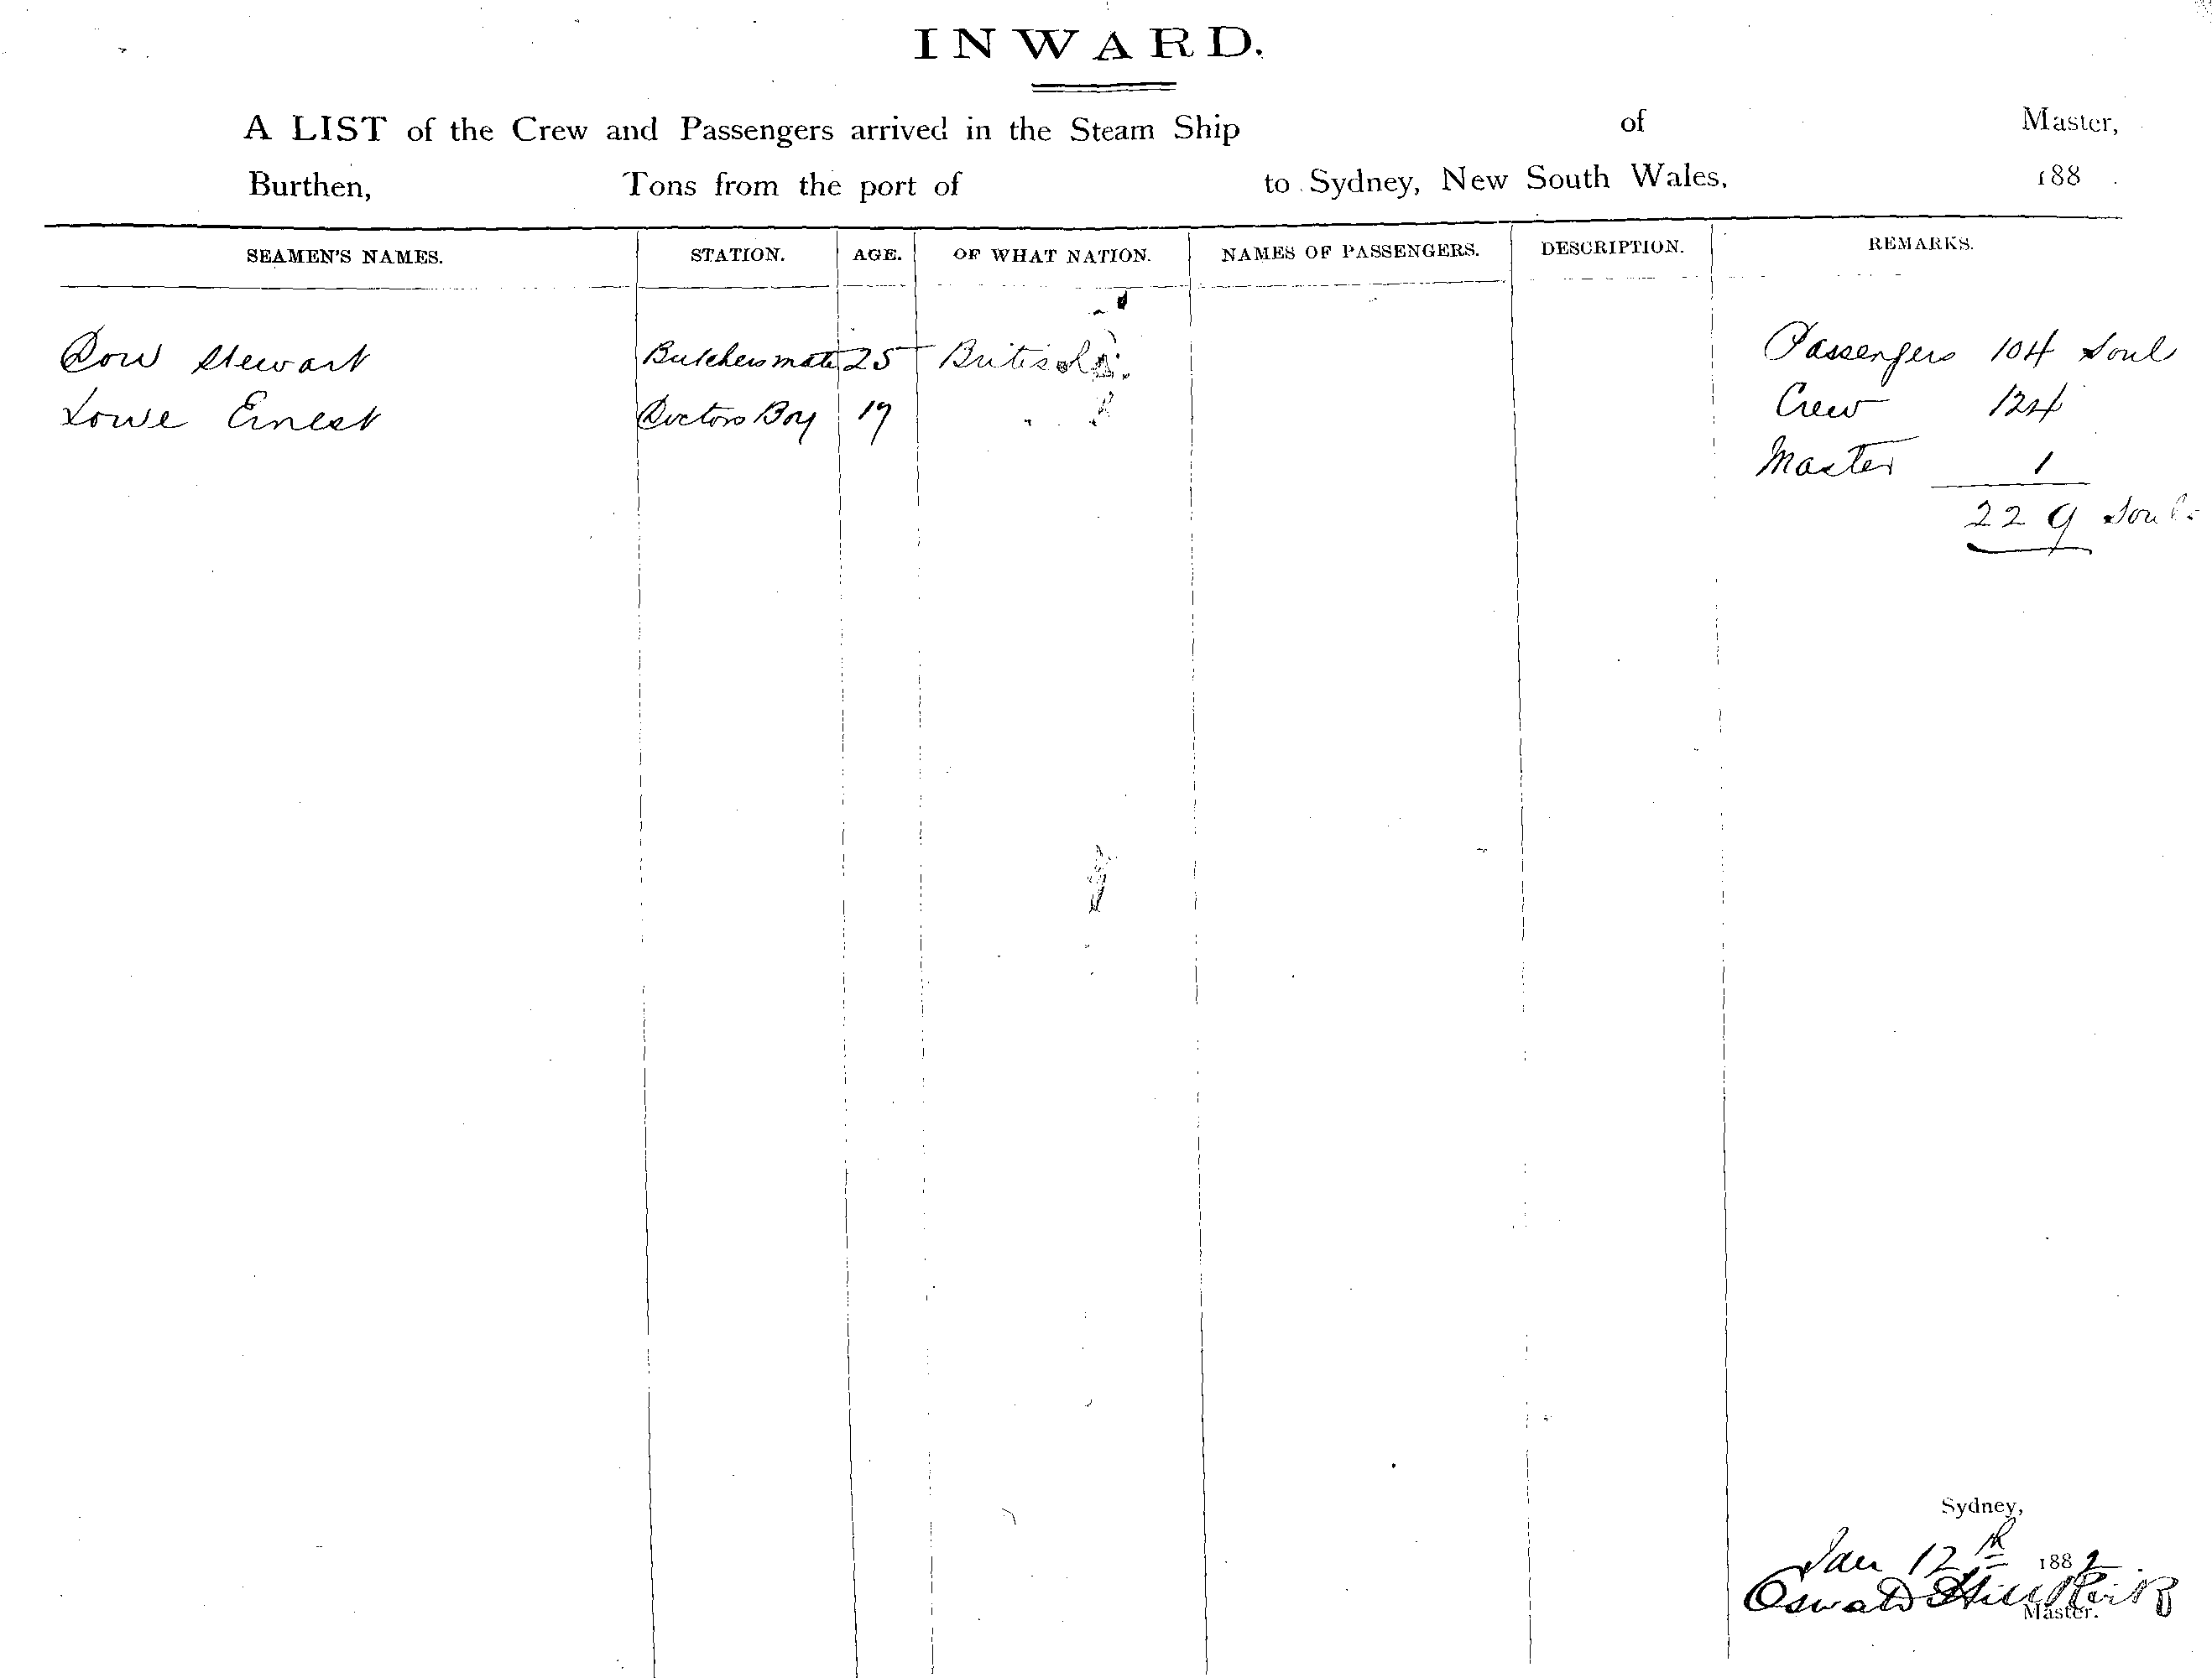 INWARD.
A LIST of the Crew and Passengers arrived in the Steam Ship of Master,
Burthen, Tons from the port of to Sydney, New South Wales, 188
SEAMEN'S NAMES. STATION. AGE. OF WHAT NATION. NAMES OF PASSENGERS. DESCRIPTION. REMARKS.
Dow Stewart Butchers mate 25 British Passengers 104 Soul
Lowe Ernest Doctors Boy 19 " " Crew 124
Master 1
229 Souls
Sydney,
Jan 12th 1882
Oswald
Master.